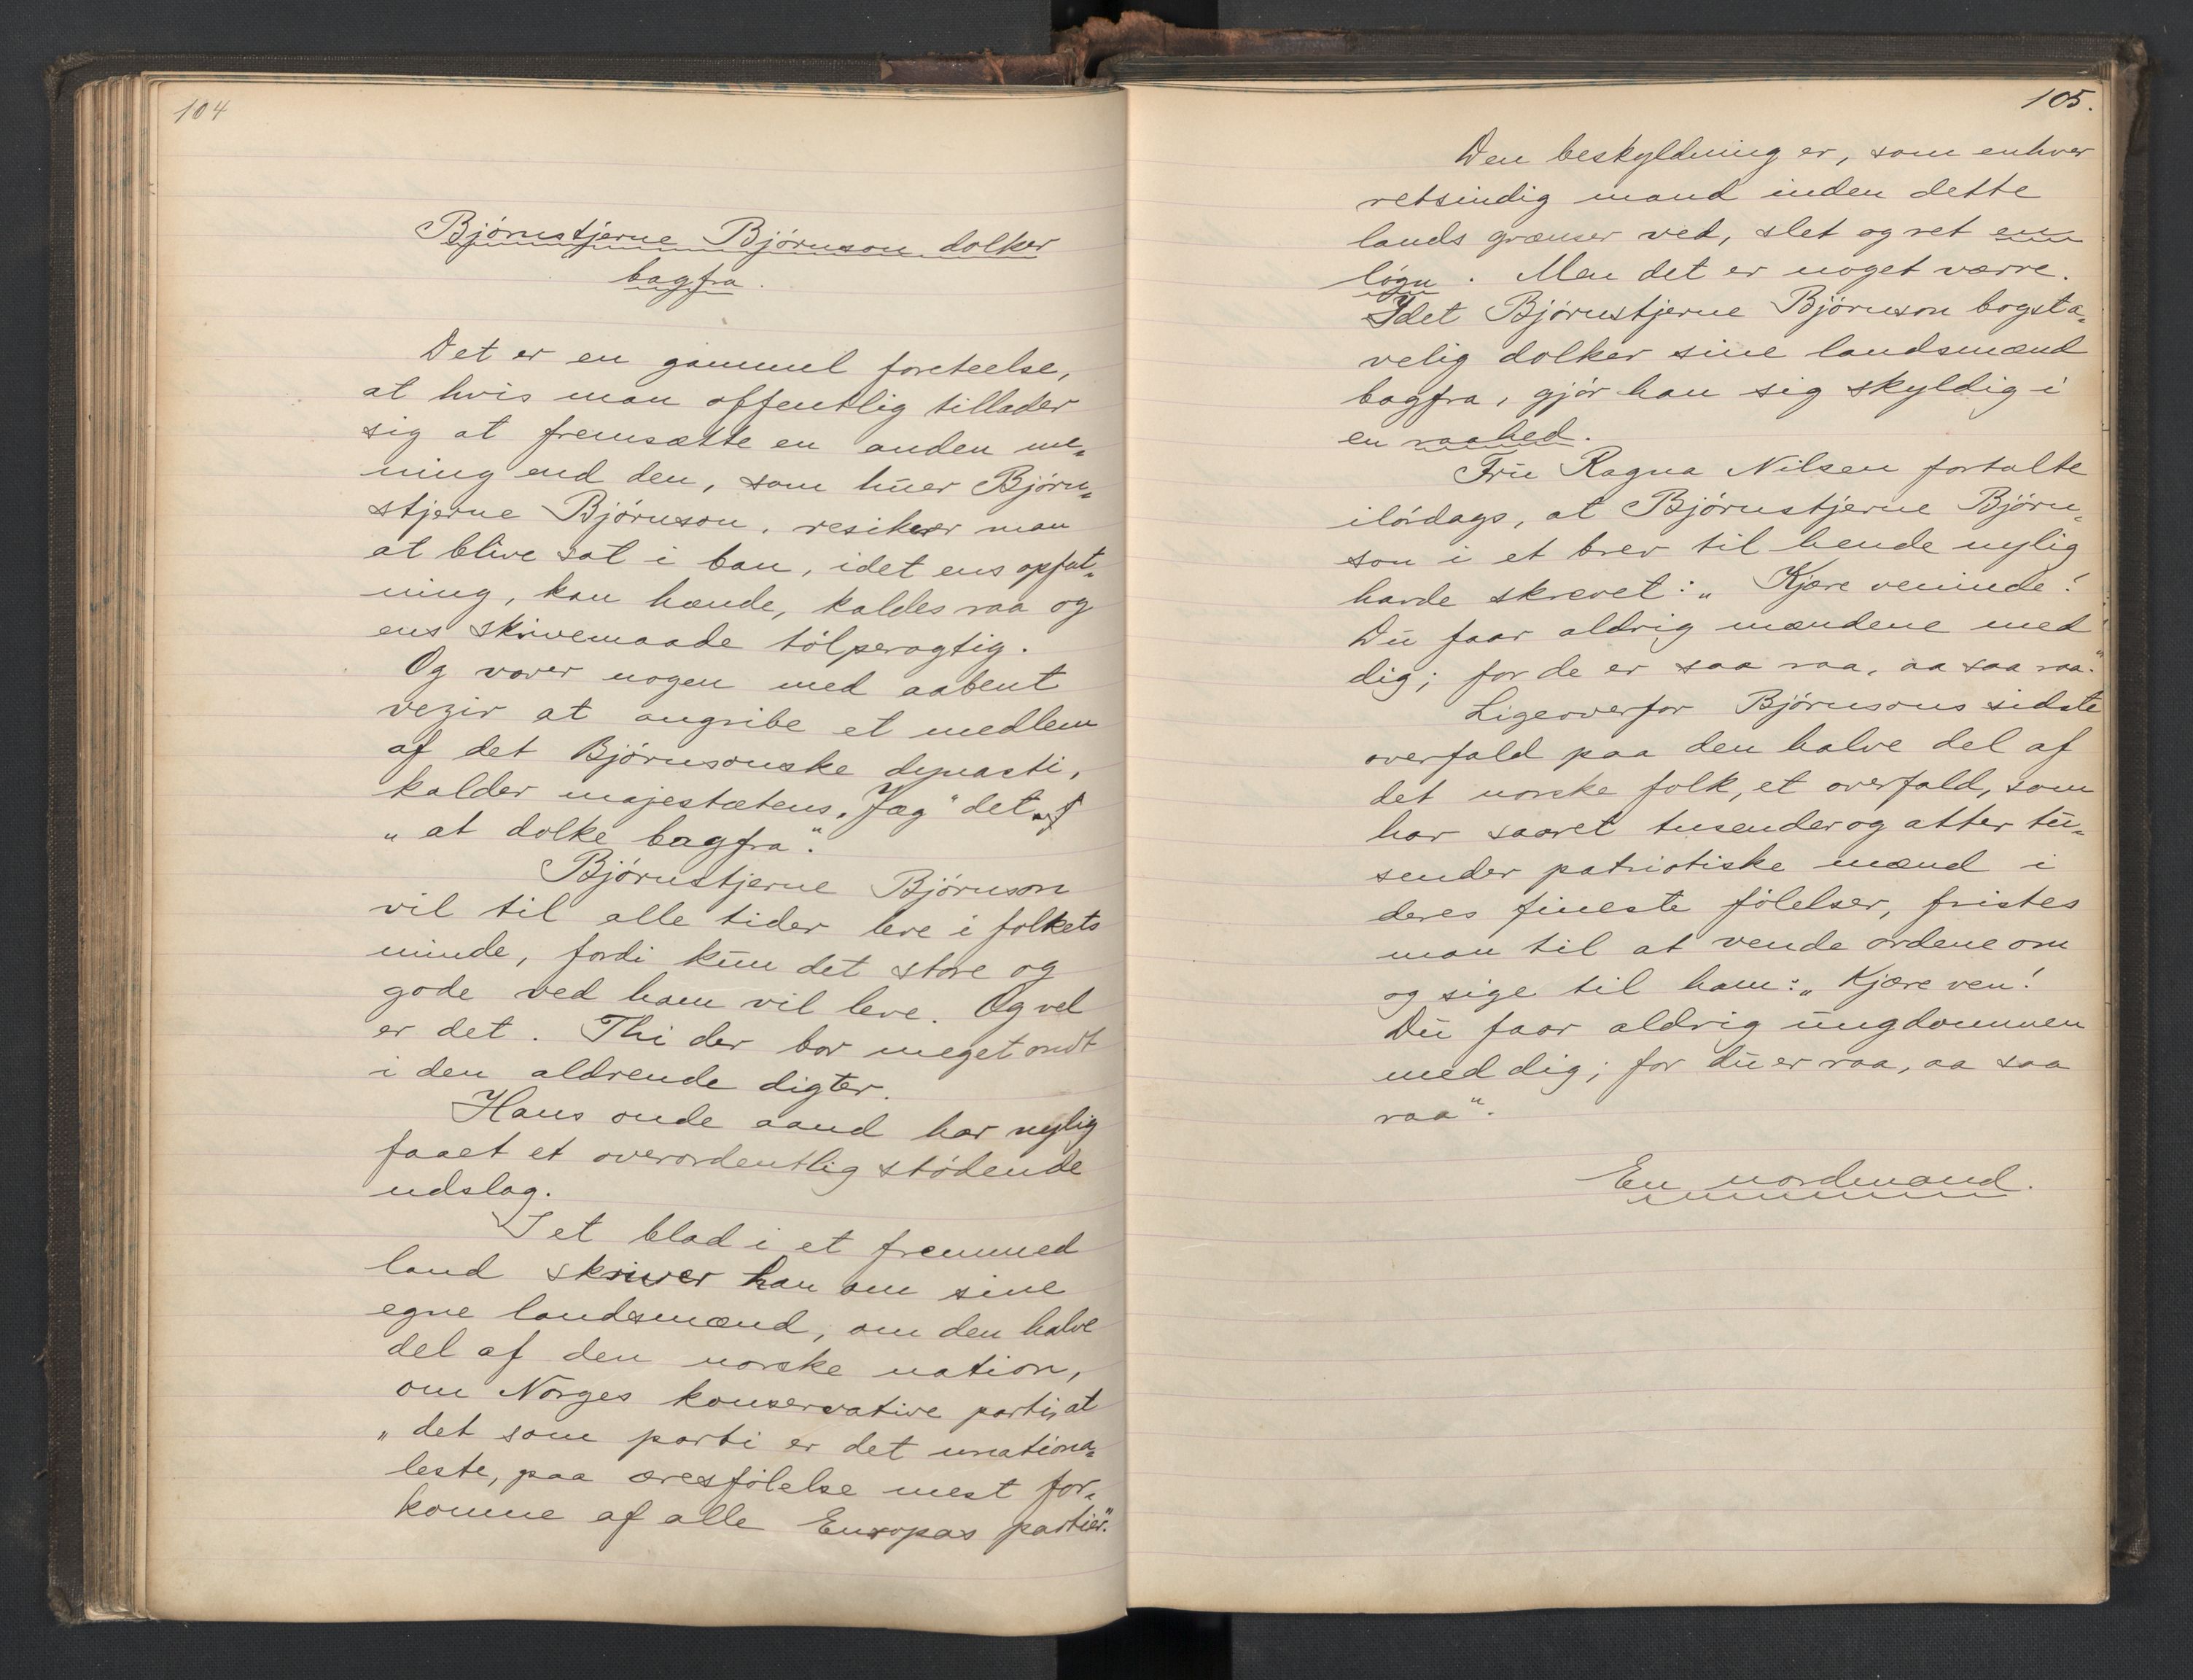 104
Bjørnstjerne Bjørnson dolker
bagfra.
Det er en gammel foreteelse,
at hvis man offentlig tillader
sig at fremsætte en anden me„
ning end den, som huer Bjørn„
stjerne Bjørnson, resikerer man
at blive sat i ban, idet ens opfat„
ning, kan hænde, kaldes raa og
ens skrivemaade tølperagtig.
Og vover nogen med aabent
vezir at angribe et medlem
af det Bjørnsonske dynasti,
kalder majestætens „Jæg" det
„at dolke bagfra".
Bjørnstjerne Bjørnson
vil til alle tider leve i folkets
minde, fordi kun det store og
gode ved ham vil leve. Og vel
er det. Thi der bor meget ondt
i den aldrende digter.
Hans onde aand har nylig
faaet et overordentlig stødende
udslag.
I et blad i et fremmed
land skriver han om sine
egne landsmænd, om den halve
del af den norske nation,
om Norges konservative parti, at
„det som parti er det unationa„
leste, paa æresfølelse mest for„
komne af alle Europas partier".
105.
Den beskyldning er, som enhver
retsindig mand inden dette
lands grænser ved, slet og ret en
løgn. Men det er noget værre.
Idet Bjørnstjerne Bjørnson bogsta„
velig dolker sine landsmænd
bagfra, gjør han sig skyldig i
en raahed.
Fru Ragna Nilsen fortalte
ilørdags, at Bjørnstjerne Bjørn„
son i et brev til hende nylig
havde skrevet: „Kjære veninde!
Du faar aldrig mændene med
dig; for de er saa raa, aa saa raa."
Ligeoverfor Bjørnsons sidste
overfald paa den halve del af
det norske folk, et overfald, som
har saaret tusender og atter tu„
sender patriotiske mænd i
deres fineste følelser, fristes
man til at vende ordene om
og sige til ham: „Kjære ven!
Du faar aldrig ungdommen
med dig; for du er raa, aa saa
raa".
En nordmand.